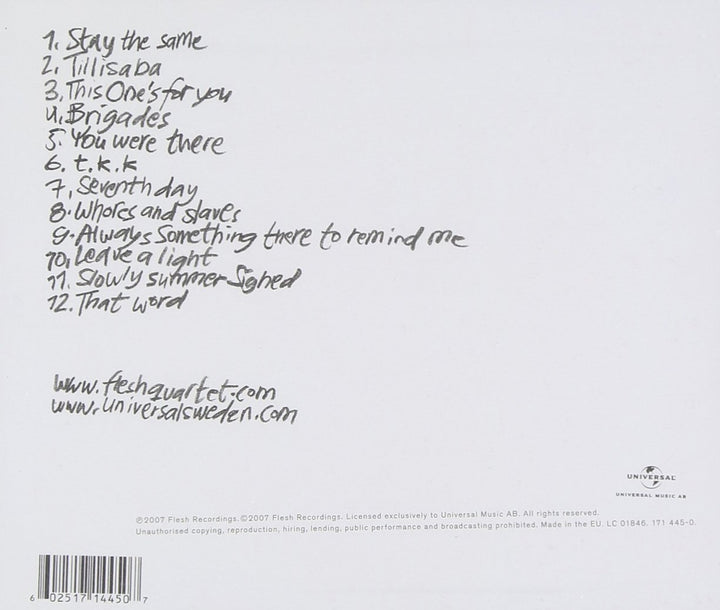 1. Stay the same
2. Tillisaba
3. This One's for you
4. Brigades
5. You were there
6. t.k.k
7. Seventh day
8. Whores and slaves
9. Always Something there to remind me
10. Leave a light
11. Slowly summer Sighed
12. That word
www.fleshquartet.com
www.universalsweden.com
UNIVERSAL
UNIVERSAL MUSIC AB
℗2007 Flesh Recordings. ©2007 Flesh Recordings. Licensed exclusively to Universal Music AB. All rights reserved.
Unauthorised copying, reproduction, hiring, lending, public performance and broadcasting prohibited. Made in the EU. LC 01846. 171 445-0.
6 02517 14450 7